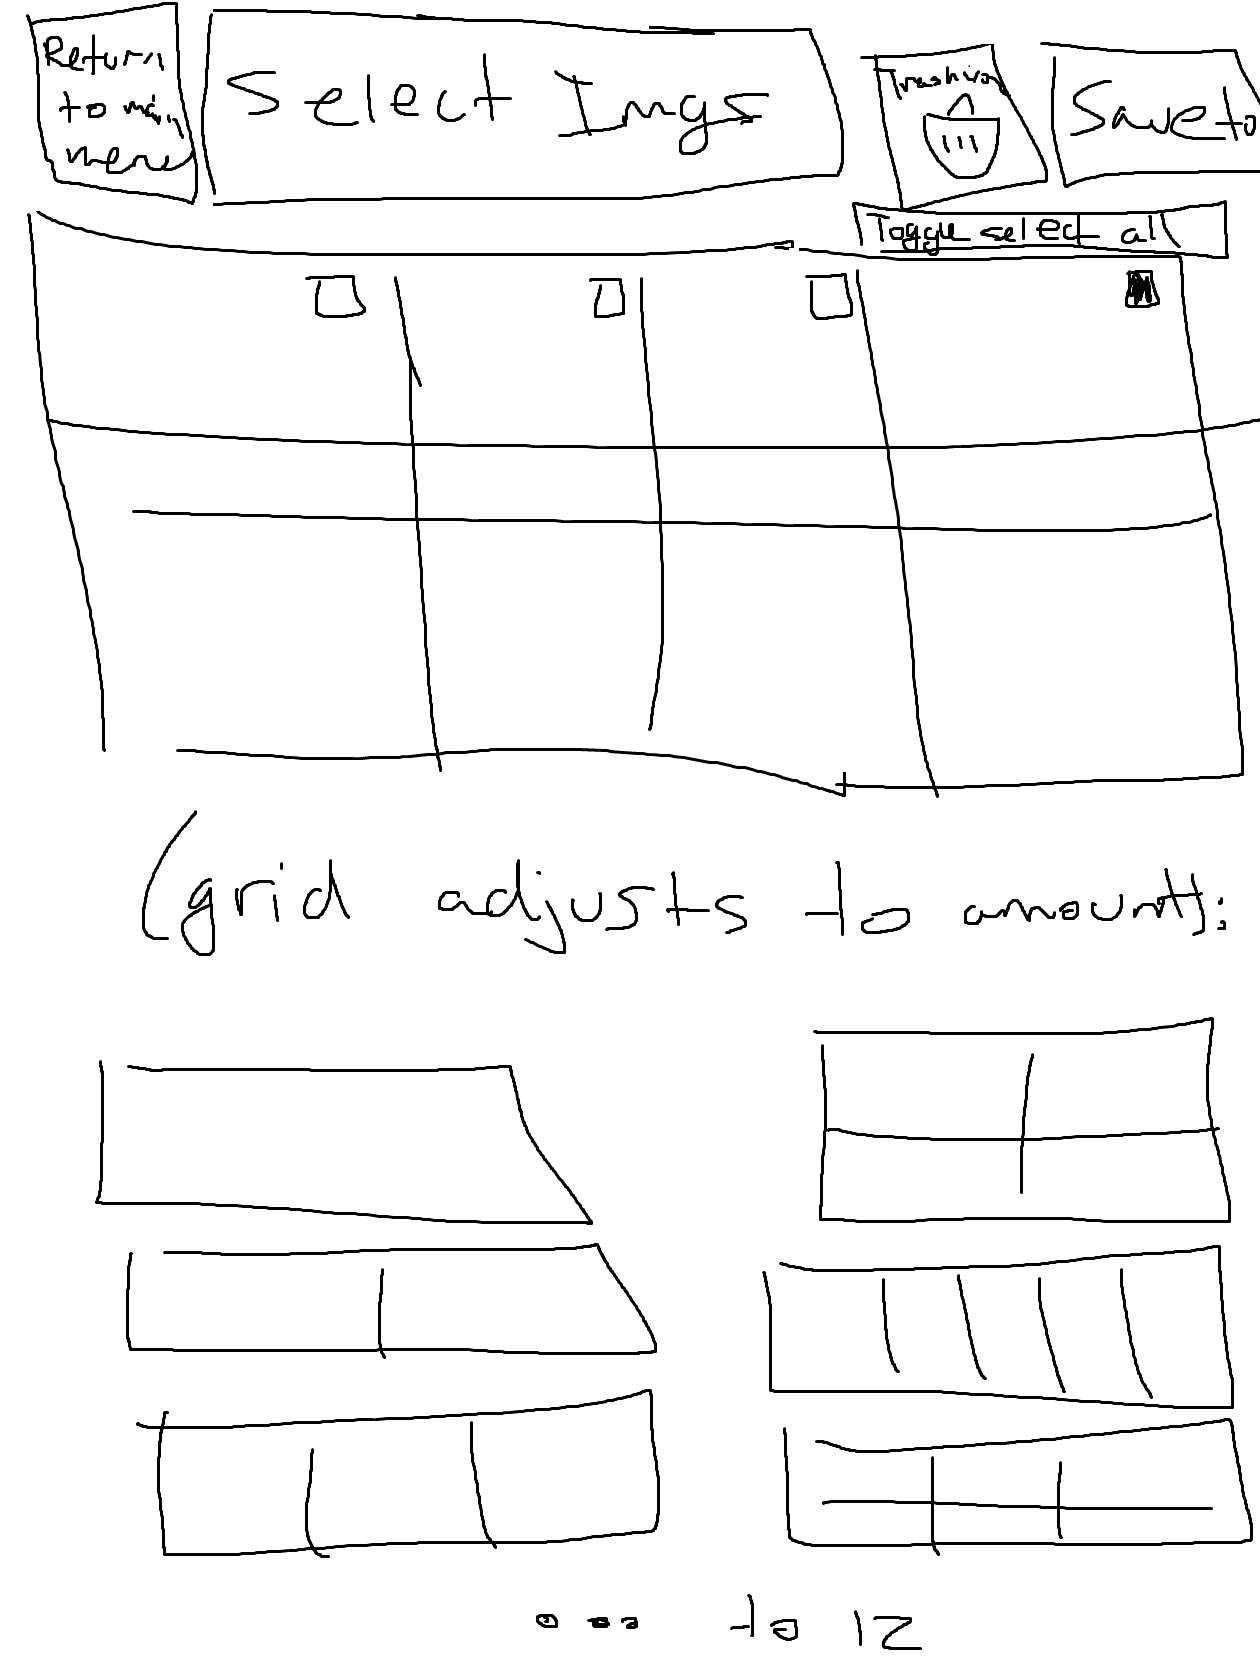 Return
to main
menu
Select Imgs
Save to
Toggle select all
(grid adjusts to amount):
... to 12